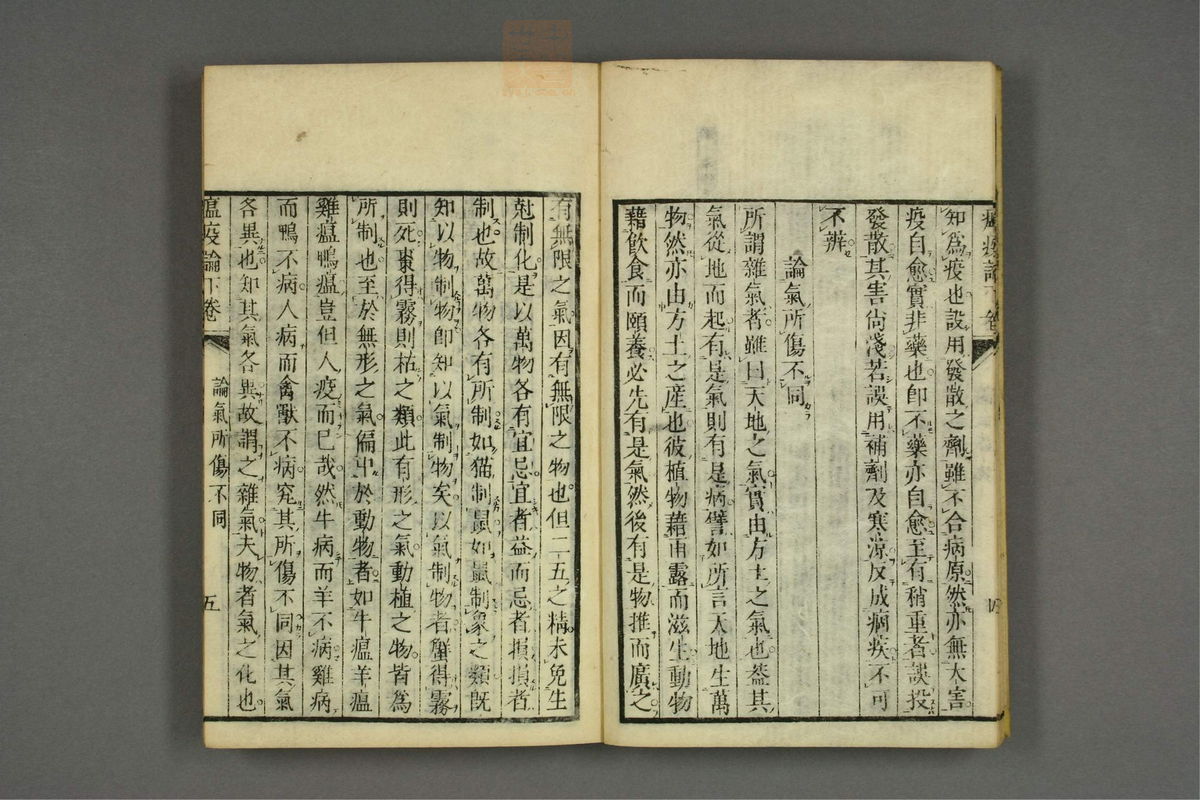 瘟疫論下卷
知爲疫也設用發散之劑雖不合病原然亦無大害
疫自愈實非藥也卽不藥亦自愈至有稍重者誤投
發散其害尚淺若誤用補劑及寒涼反成痼疾不可
不辨
論氣所傷不同
所謂雜氣者雖曰天地之氣實由方土之氣也葢其
氣從地而起有是氣則有是病譬如所言天地生萬
物然亦由方土之産也彼植物藉雨露而滋生動物
藉飮食而頤養必先有是氣然後有是物推而廣之
有無限之氣因有無限之物也但二五之精未免生
尅制化是以萬物各有宜忌宜者益而忌者損損者
制也故萬物各有所制如猫制鼠如鼠制象之類旣
知以物制物卽知以氣制物矣以氣制物者蟹得霧
則死棗得霧則枯之類此有形之氣動植之物皆爲
所制也至於無形之氣偏中於動物者如牛瘟羊瘟
雞瘟鴨瘟豈但人疫而已哉然牛病而羊不病雞病
而鴨不病人病而禽獸不病究其所傷不同因其氣
各異也知其氣各異故謂之雜氣夫物者氣之化也
瘟疫論下卷
論氣所傷不同
五